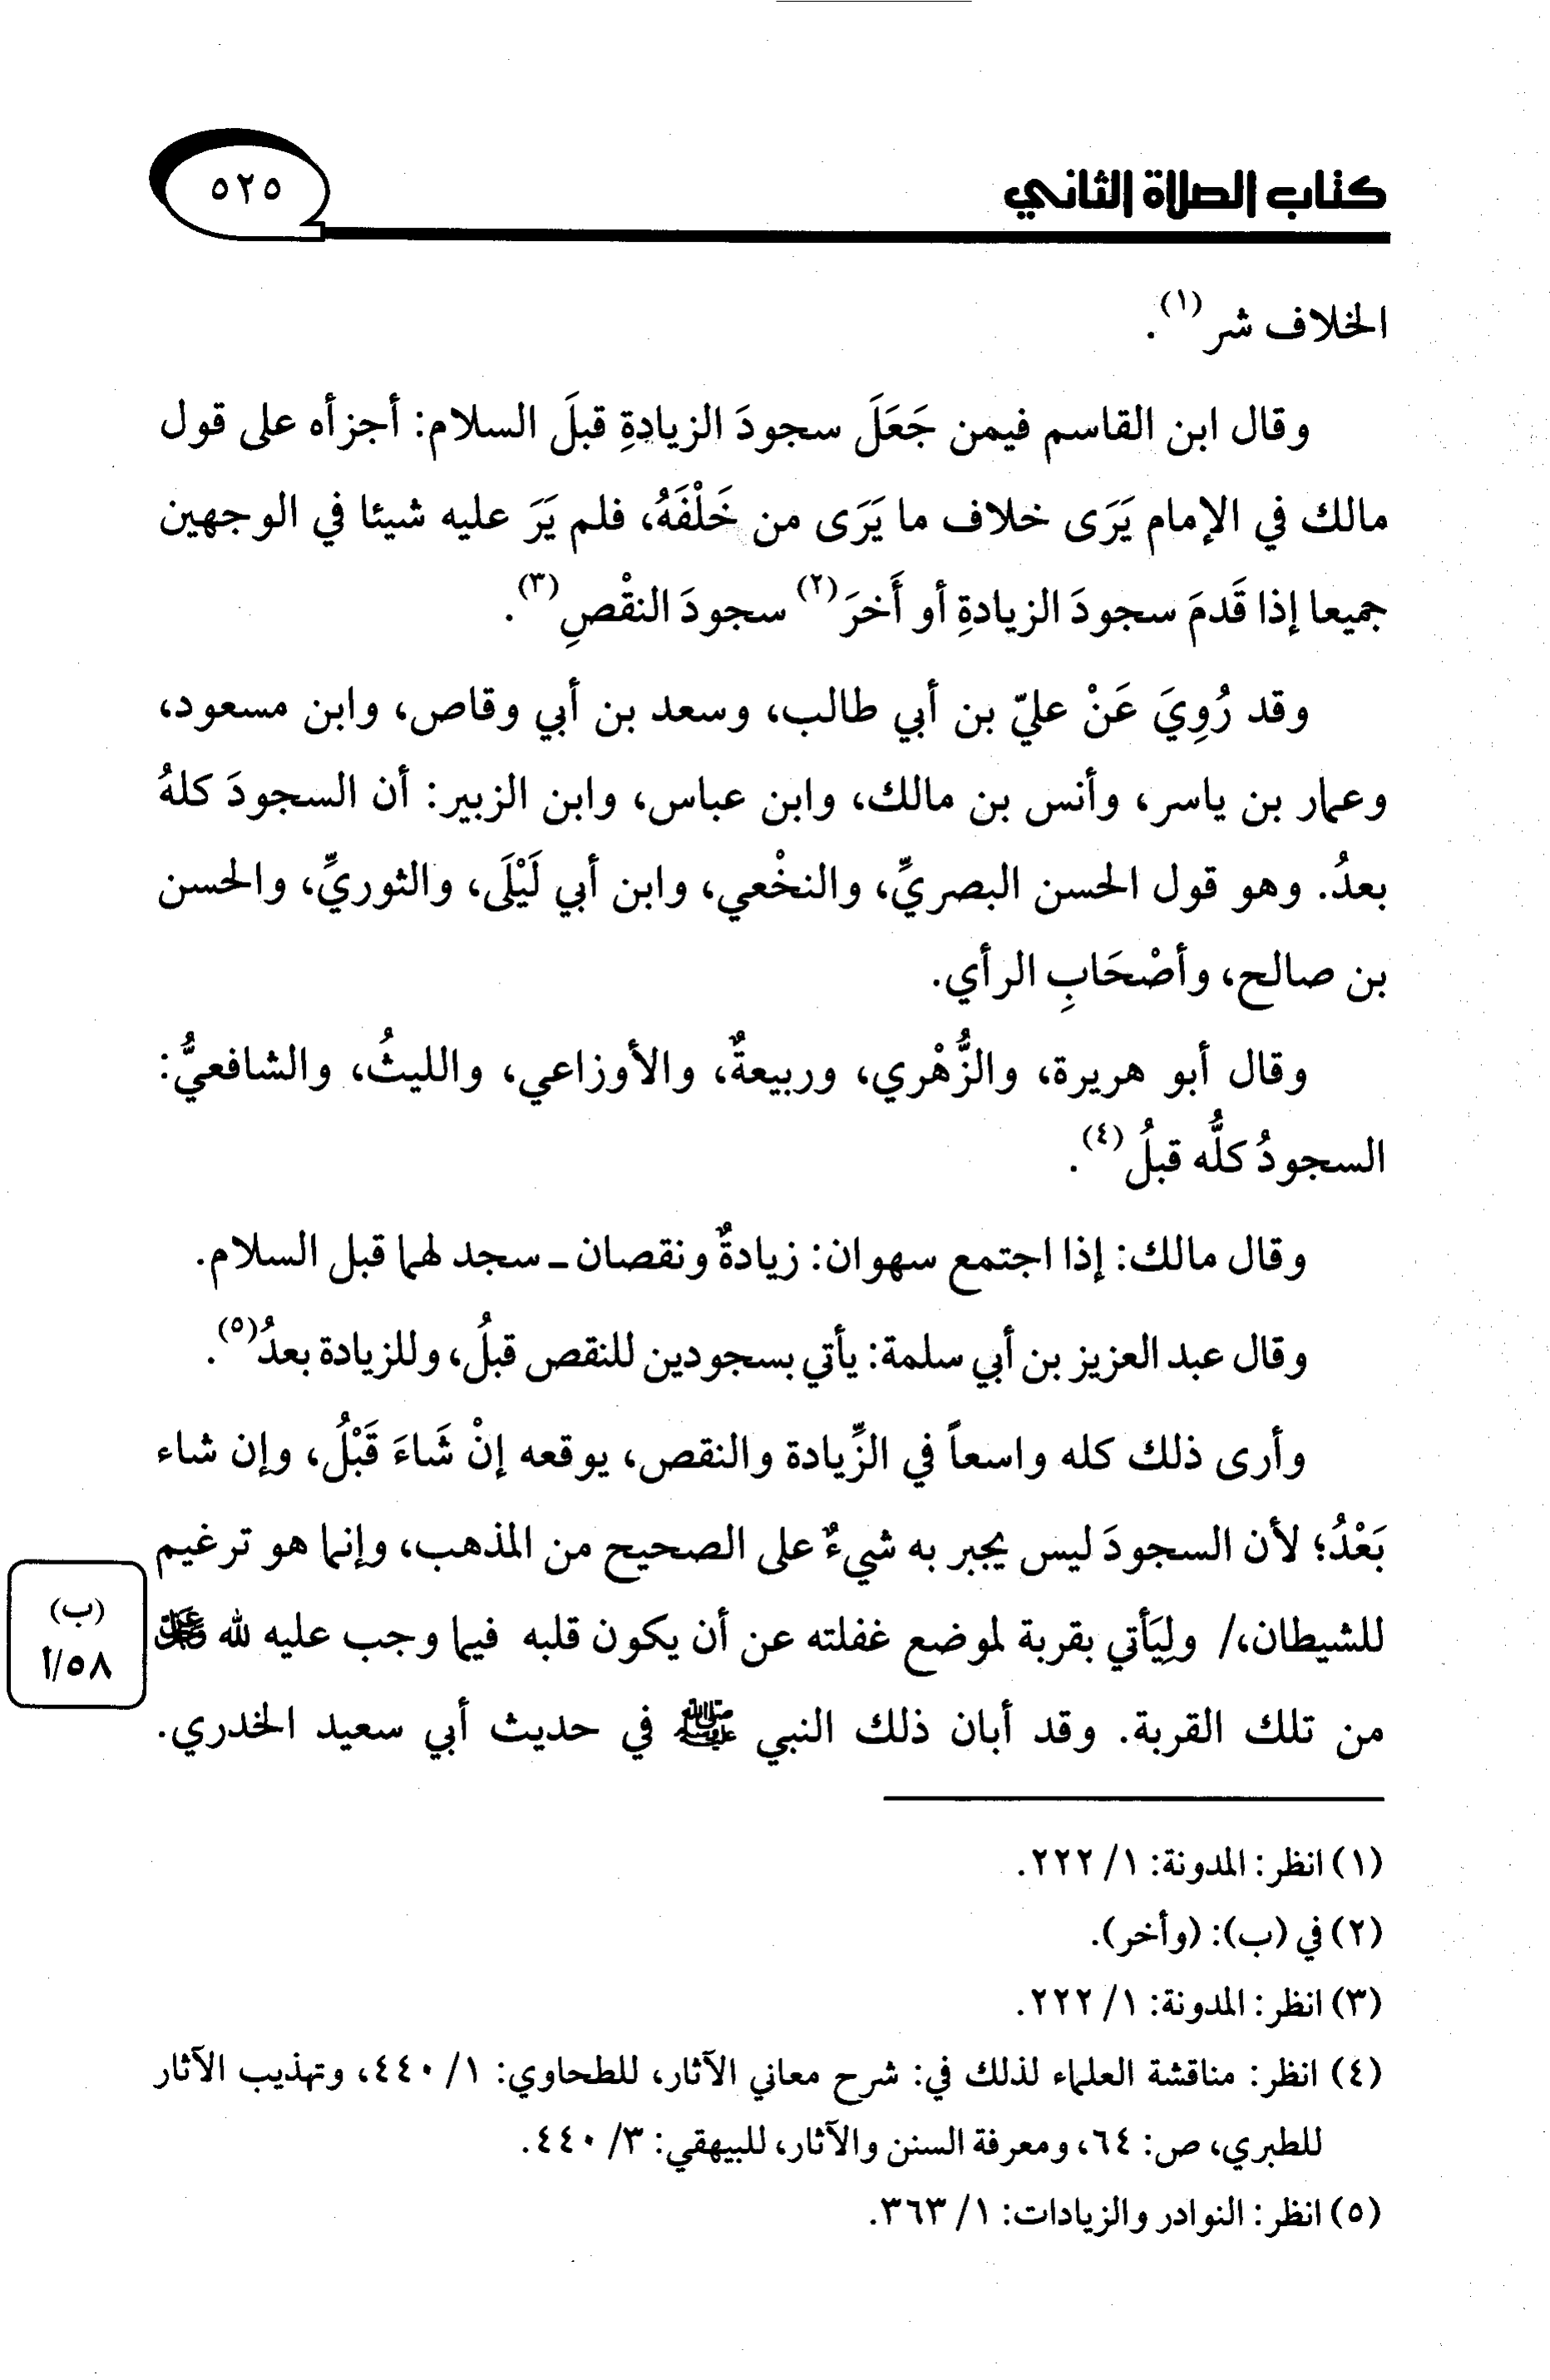 كتاب الصلاة الثاني
٥٢٥
الخلاف شر (١).
وقال ابن القاسم فيمن جَعَلَ سجودَ الزيادةِ قبلَ السلام: أجزأه على قول
مالك في الإمام يَرَى خلاف ما يَرَى من خَلْفَهُ، فلم يَرَ عليه شيئا في الوجهين
جميعا إذا قَدمَ سجودَ الزيادةِ أو أَخرَ (٢) سجودَ النقْصِ (٣).
وقد رُوِيَ عَنْ عليّ بن أبي طالب، وسعد بن أبي وقاص، وابن مسعود،
وعمار بن ياسر، وأنس بن مالك، وابن عباس، وابن الزبير: أن السجودَ كلهُ
بعدُ. وهو قول الحسن البصريِّ، والنخْعي، وابن أبي لَيْلَى، والثوريِّ، والحسن
بن صالح، وأصْحَابِ الرأي.
وقال أبو هريرة، والزُّهْري، وربيعةٌ، والأوزاعي، والليثُ، والشافعيُّ:
السجودُ كلُّه قبلُ (٤).
وقال مالك: إذا اجتمع سهوان: زيادةٌ ونقصان ـ سجد لهما قبل السلام.
وقال عبد العزيز بن أبي سلمة: يأتي بسجودين للنقص قبلُ، وللزيادة بعدُ (٥).
وأرى ذلك كله واسعاً في الزِّيادة والنقص، يوقعه إنْ شَاءَ قَبْلُ، وإن شاء
بَعْدُ؛ لأن السجودَ ليس يجبر به شيءٌ على الصحيح من المذهب، وإنما هو ترغيم
للشيطان،/ ولِيَأتي بقربة لموضع غفلته عن أن يكون قلبه فيما وجب عليه لله ﷿
(ب)
٥٨/أ
من تلك القربة. وقد أبان ذلك النبي ﷺ في حديث أبي سعيد الخدري.
(١) انظر: المدونة: ١/ ٢٢٢.
(٢) في (ب): (وأخر).
(٣) انظر: المدونة: ١/ ٢٢٢.
(٤) انظر: مناقشة العلماء لذلك في: شرح معاني الآثار، للطحاوي: ١/ ٤٤٠، وتهذيب الآثار
للطبري، ص: ٦٤، ومعرفة السنن والآثار، للبيهقي: ٣/ ٤٤٠.
(٥) انظر: النوادر والزيادات: ١/ ٣٦٣.